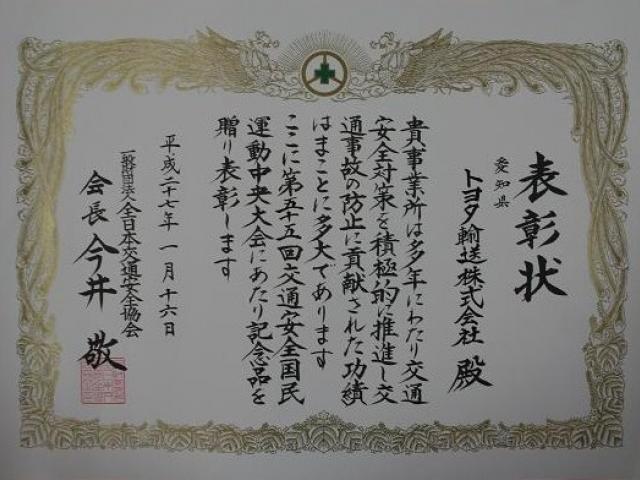 表彰状
愛知県
トヨタ輸送株式会社 殿
貴事業所は多年にわたり交通
安全対策を積極的に推進し交
通事故の防止に貢献された功績
はまことに多大であります
ここに第五十五回交通安全国民
運動中央大会にあたり記念品を
贈り表彰します
平成二十七年一月十六日
一般財団法人全日本交通安全協会
会長 今井 敬